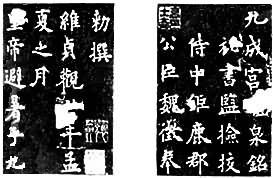 九成宮泉銘
書監撿挍
侍中鉅鹿郡
公臣魏徵奉
勑撰
維貞觀年孟
夏之月
皇帝避暑乎九